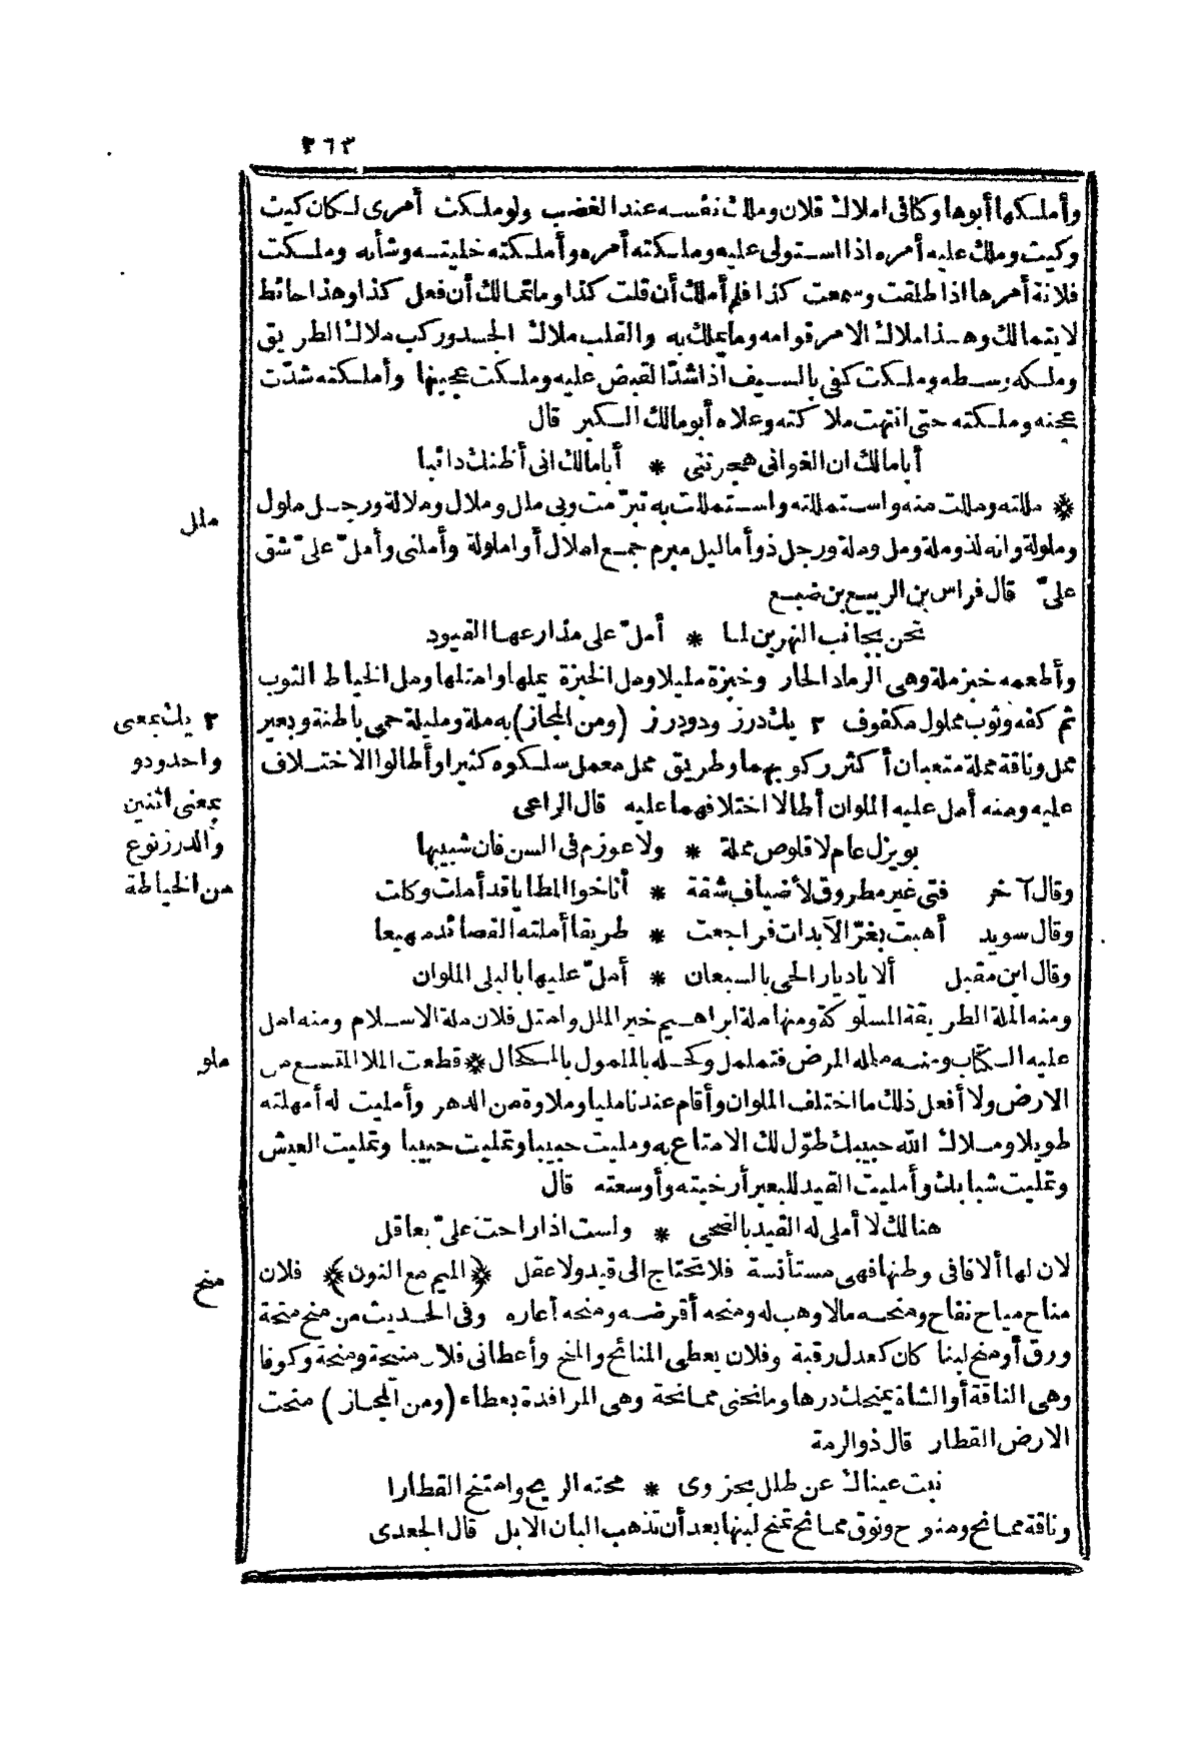 ٢٦٣
وأملكها أبوها وكنا في املاك فلان وملك نفسه عند الغضب ولو ملكت أمرى لكان كيت
وكيت وملك عليه أمره اذا استولى عليه وملكته أمره وأملكته خليته وشأنه وملكت
فلانة أمرها اذا طلقت وسمعت كذا فلم أملك أن قلت كذا وما تمالك أن فعل كذا وهذا حائط
لا يتمالك وهذا ملاك الامر قوامه وما يملك به والقلب ملاك الجسد وركب ملاك الطريق
وملكه وسطه وملكت كفى بالسيف اذا شد القبض عليه وملكت عجينها وأملكته شدّت
عجنه وملكته حتى انتهت ملاكته وعلاه أبو مالك الكبر قال
أبا مالك ان الغوانى هجرننى * أبا مالك انى أظنك دائبا
ملل
* مللته ومللت منه واستمللته واستمللت به تبرّمت وبى ملل وملال وملالة ورجل ملول
وملولة وانه لذو ملة ومل وملة ورجل ذو أماليل مبرم جمع املال أو املولة وأملنى وأملّ علىّ شق
علىّ قال فراس بن الربيع بن ضبع
نحن بجانب النهرين لما * أملّ على مذارعها القيود
وأطعمه خبز ملة وهى الرماد الحار وخبزة مليلا ومل الخبزة يملها وامتلها ومل الخياط الثوب
ثم كفه وثوب مملول مكفوف ٢ يك درز ودو درز (ومن المجاز) به ملة ومليلة حمى باطنة وبعير
ممل وناقة مملة متعبان أكثر ركوبهما وطريق ممل معمل سلكوه كثيرا وأطالوا الاختلاف
عليه ومنه أمل عليه الملوان أطالا اختلافهما عليه قال الراعى
٢ يك بمعنى
واحد ودو
بمعنى اثنين
والدرز نوع
من الخياطة
بويزل عام لا قلوص مملة * ولا عوزم فى السن فان شبيبها
وقال آخر فتى غير مطروق لأضياف شقة * أناخوا المطايا قد أملت وكلت
وقال سويد أهبت بغرّ الآبدات فراجعت * طريقا أملته القصائد مهيعا
وقال ابن مقبل ألا يا ديار الحى بالسبعان * أملّ عليها بالبلى الملوان
ومنه الملة الطريقة المسلوكة ومنها ملة ابراهيم خير الملل وامتل فلان ملة الاسلام ومنه امل
ملو
عليه الكتاب ومنه ملله المرض فتململ وكحله بالملمول بالمكحال * قطعت الملا المتسع من
الارض ولا أفعل ذلك ما اختلف الملوان وأقام عندنا مليا وملاوة من الدهر وأمليت له أمهلته
طويلا وملاك الله حبيبك طوّل لك الامتاع به ومليت حبيبا وتمليت حبيبا وتمليت العيش
وتمليت شبابك وأمليت القيد للبعير أرخيته وأوسعته قال
هنالك لا أملى له القيد بالضحى * ولست اذا راحت علىّ بعاقل
منح
لان لها ألافا فى وطنها فهى مستأنسة فلا تحتاج الى قيد ولا عقل ﴿الميم مع النون﴾ فلان
مناح مياح نفاح ومنحه مالا وهب له ومنحه أقرضه ومنحه أعاره وفى الحديث من منح منحة
ورق أو منح لبنا كان كعدل رقبة وفلان يعطى المنائح والمنح وأعطانى فلان منيحة ومنحة وكوفا
وهى الناقة أو الشاة يمنحك درها وما نحنى ممانحة وهى المرافدة بعطاء (ومن المجاز) منحت
الارض القطار قال ذو الرمة
نبت عيناك عن طلل بحزوى * محته الريح وامتنح القطارا
وناقة ممانح ومنوح ونوق ممانح تمنح لبنها بعد أن تذهب البان الابل قال الجعدى